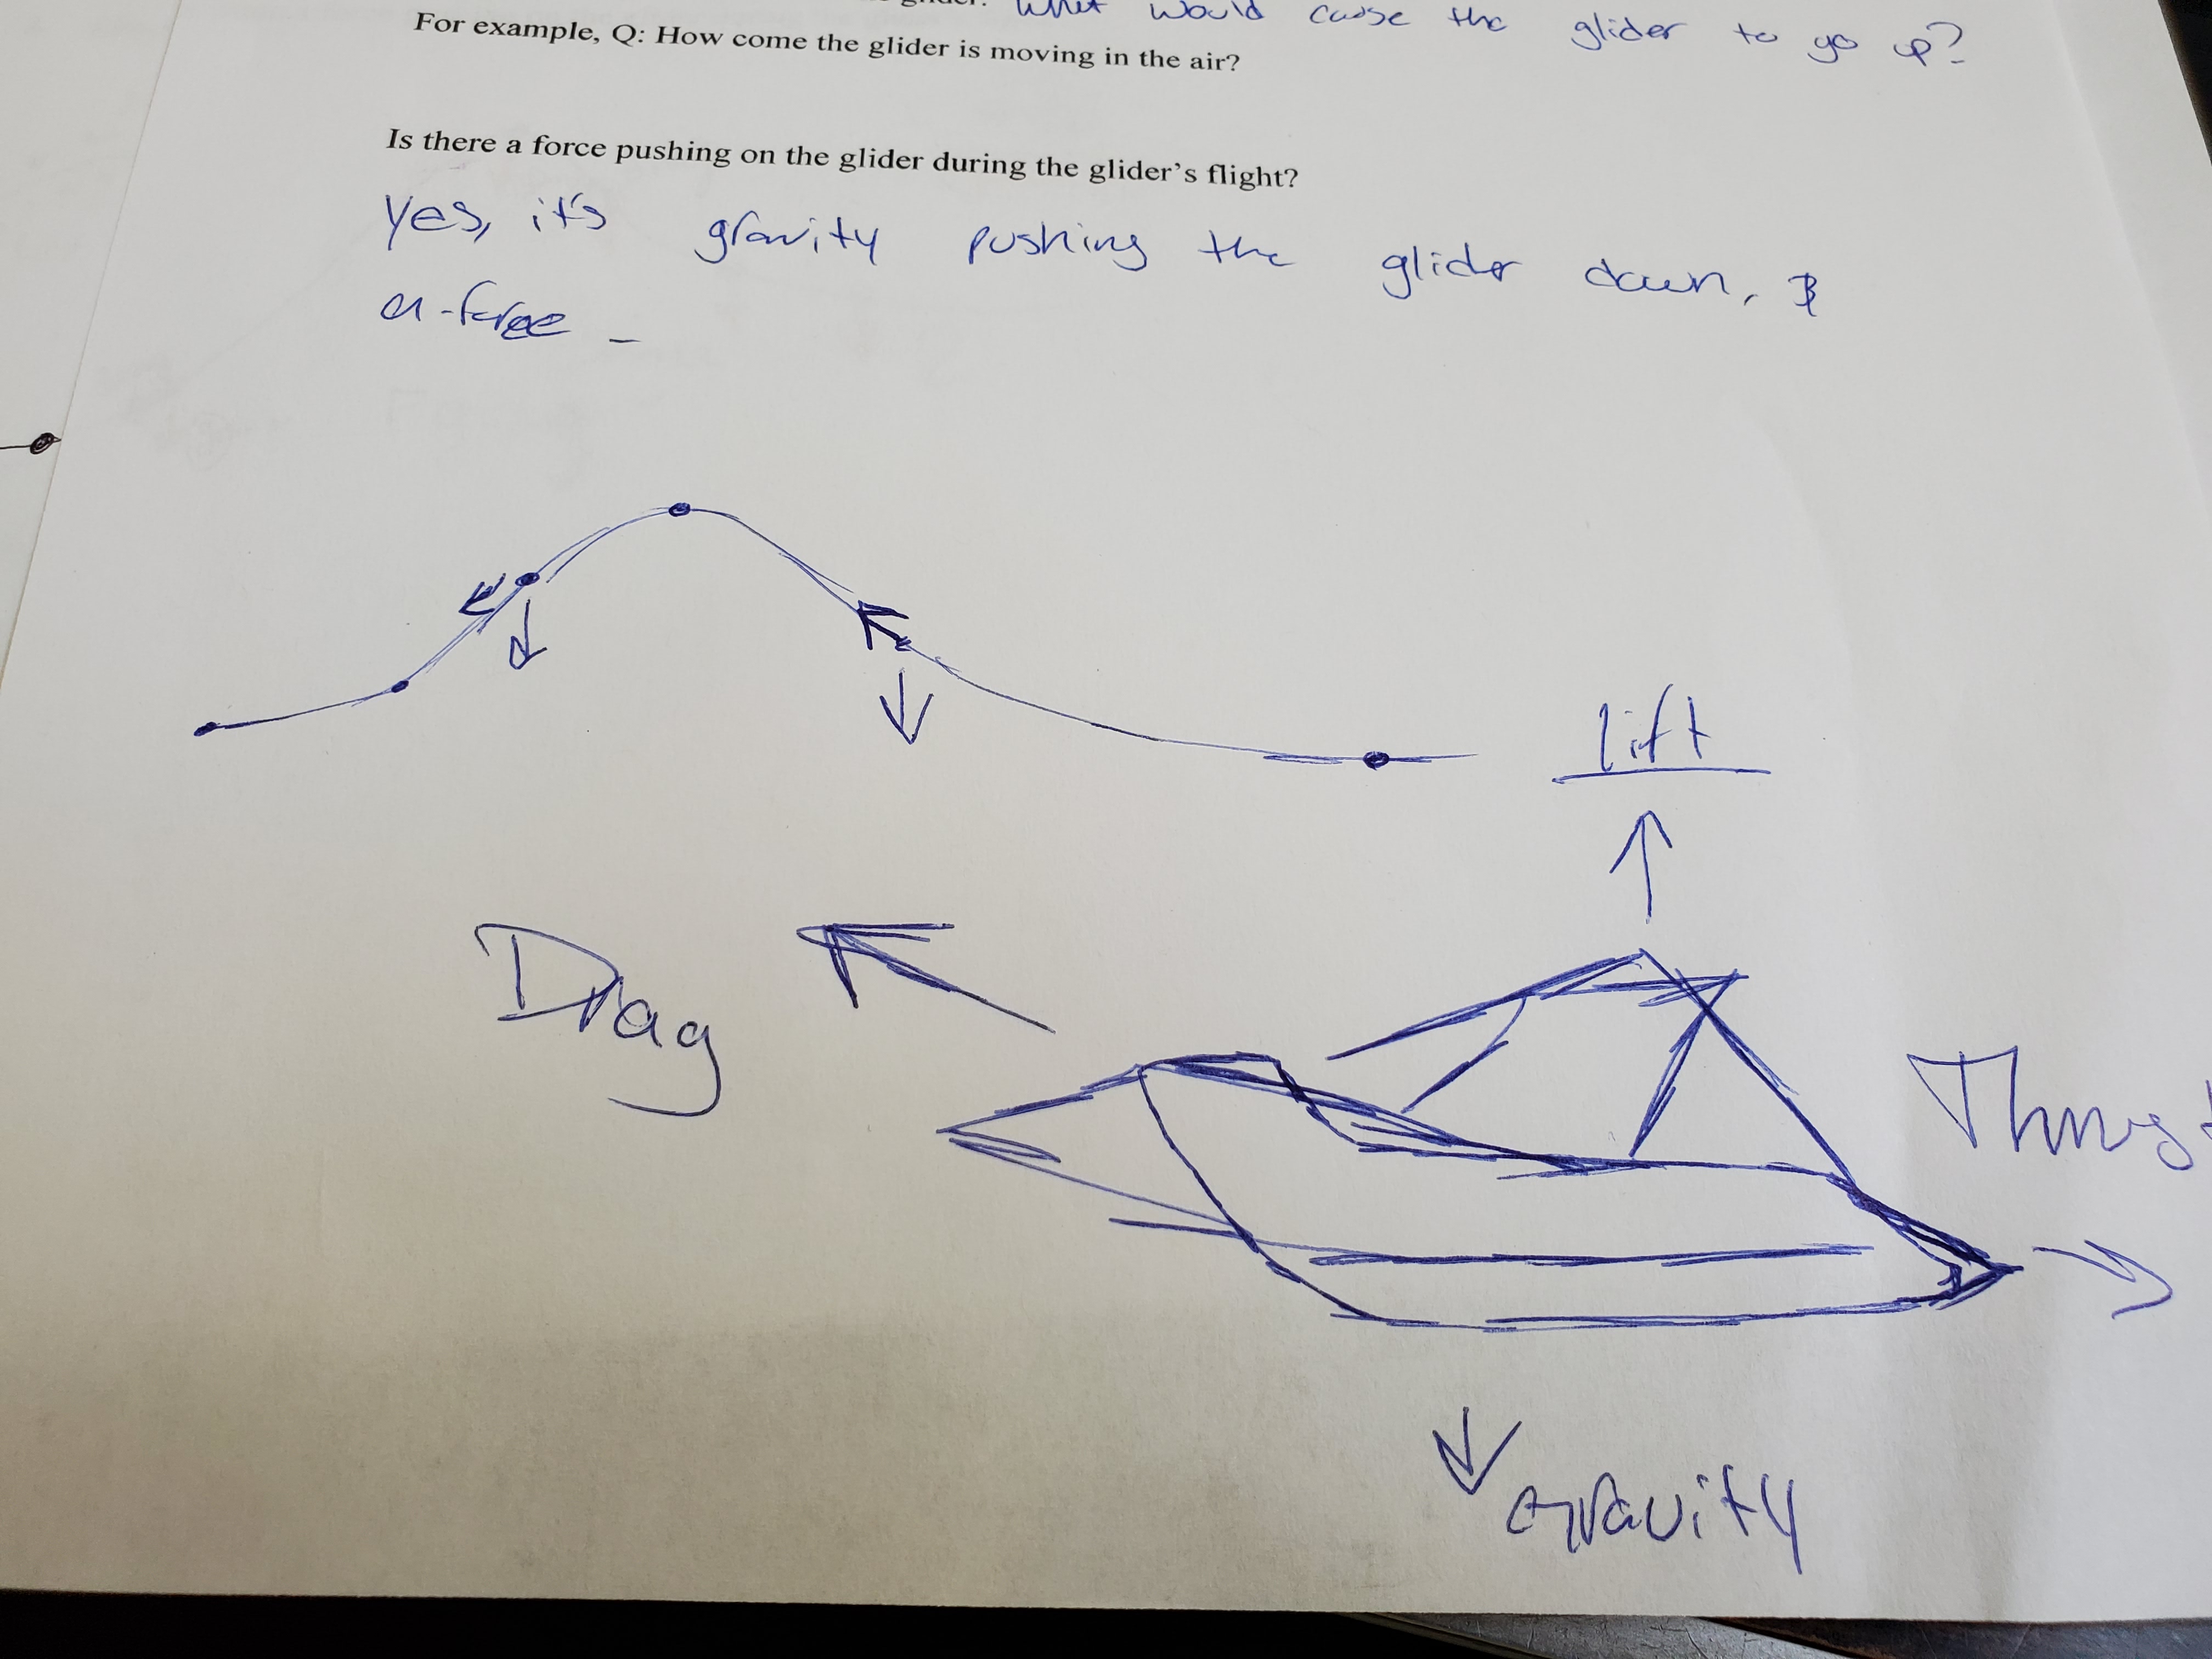 What would cause the glider to go up?
For example, Q: How come the glider is moving in the air?
Is there a force pushing on the glider during the glider's flight?
Yes, it's gravity pushing the glider down, &
a force
lift
Drag
Thrust
Gravity